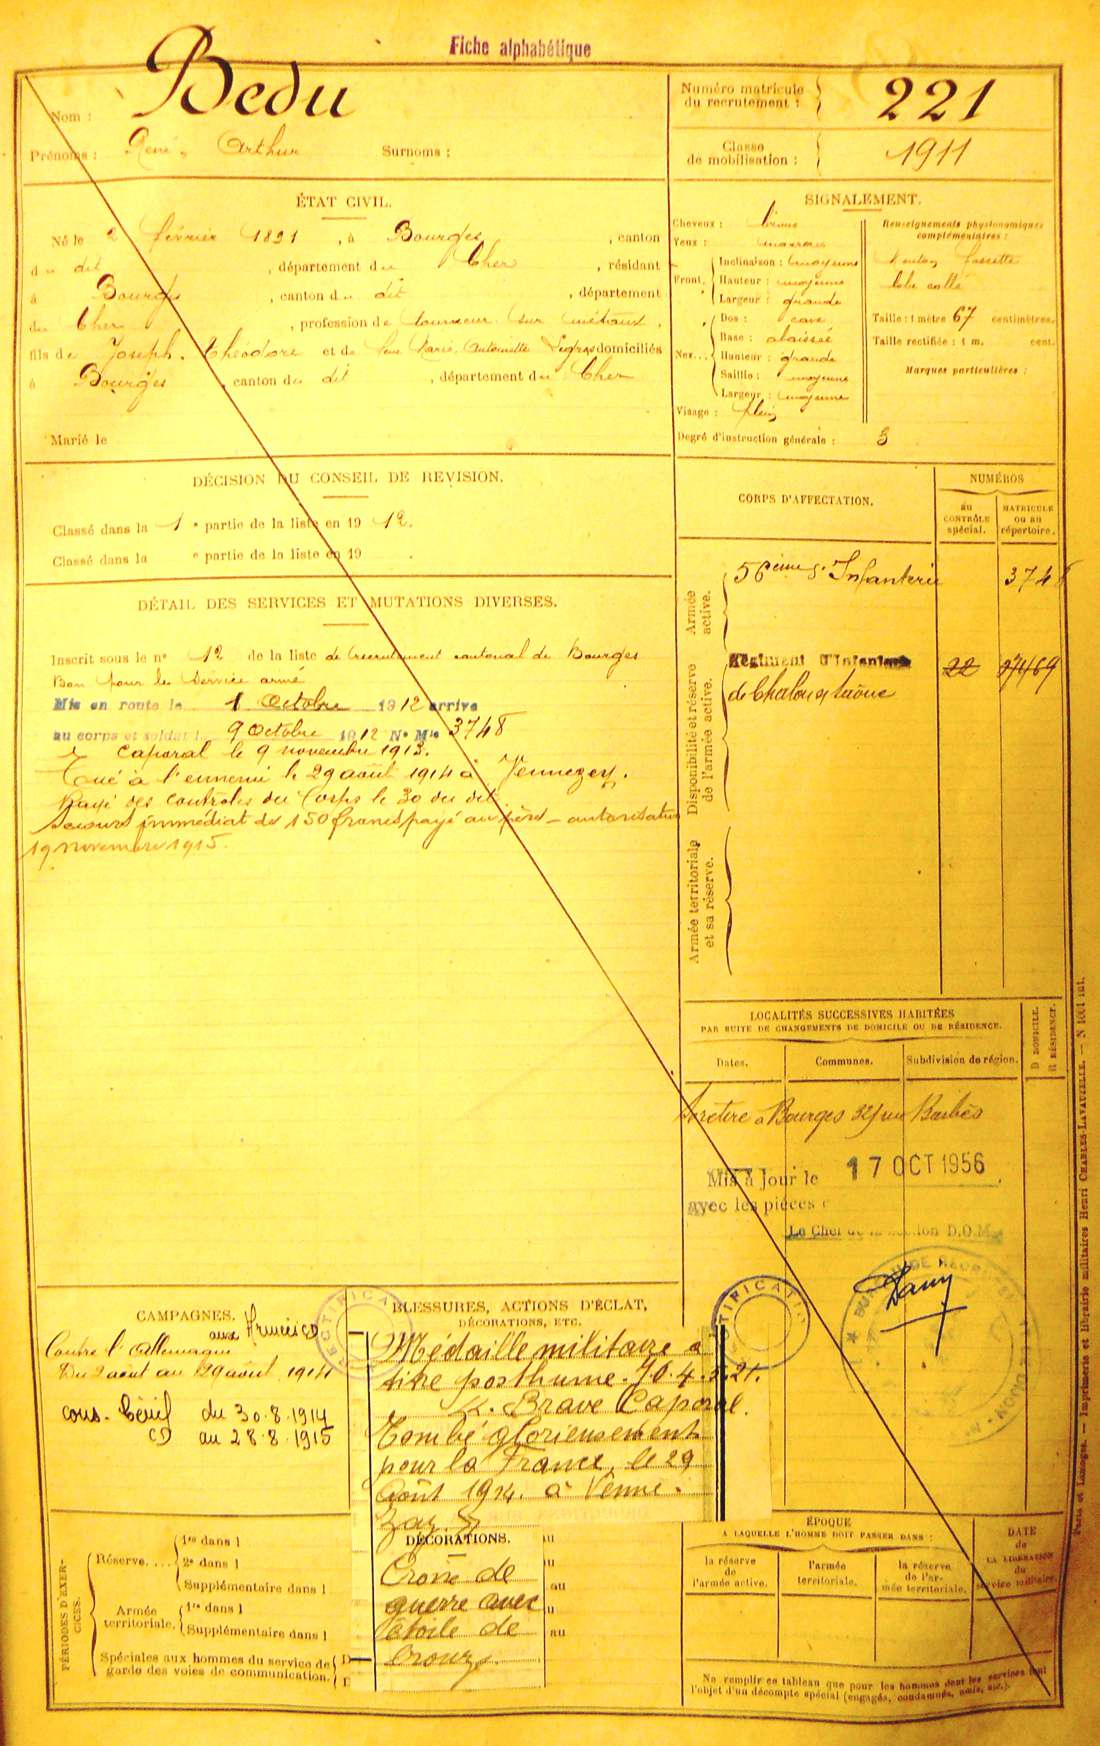 Fiche alphabétique
Nom : Bedu
Prénoms : René, Arthur Surnoms :
Numéro matricule du recrutement : 221
Classe de mobilisation : 1911
ÉTAT CIVIL.
Né le 2 février 1891, à Bourges, canton
du dit, département du Cher, résidant
à Bourges, canton du dit, département
du Cher, profession de tourneur sur métaux,
fils de Joseph, Théodore et de Marie, Antoinette domiciliés
à Bourges, canton du dit, département du Cher
Marié le
SIGNALEMENT.
Cheveux :
Yeux : marrons
Front. Inclinaison : moyenne
Hauteur : moyenne
Largeur : grande
Nez... Dos : cave
Base : abaissée
Hauteur : grande
Saillie : moyenne
Largeur : moyenne
Visage : plein
Renseignements physionomiques complémentaires :
Menton fossette
lobe collé
Taille : 1 mètre 67 centimètres.
Taille rectifiée : 1 m. cent.
Marques particulières :
Degré d'instruction générale : 3
DÉCISION DU CONSEIL DE REVISION.
Classé dans la 1 e partie de la liste en 19 12.
Classé dans la e partie de la liste en 19 .
DÉTAIL DES SERVICES ET MUTATIONS DIVERSES.
Inscrit sous le n° 12 de la liste de recrutement cantonal de Bourges
Bon pour le service armé
Mis en route le 1 Octobre 1912 arrivé
au corps et soldat 9 Octobre 1912 N° Mle 3748
Caporal le 9 novembre 1913.
Tué à l'ennemi le 29 août 1914 à Vennezey.
Rayé des contrôles du Corps le 30 du dit.
Secours immédiat de 150 francs payé au père - autorisation
19 novembre 1915.
CORPS D'AFFECTATION.
NUMÉROS
au contrôle spécial.
MATRICULE ou au répertoire.
Armée active.
56ème d'Infanterie 3748
Disponibilité et réserve de l'armée active.
Régiment d'Infanterie
de Chalon s/ Saône
Armée territoriale et sa réserve.
LOCALITÉS SUCCESSIVES HABITÉES
PAR SUITE DE CHANGEMENTS DE DOMICILE OU DE RÉSIDENCE.
Dates. Communes. Subdivision de région.
D DOMICILE.
R RÉSIDENCE.
Se retire à Bourges 32 rue Barbès
Mis à jour le 17 OCT 1956
avec les pièces
Le Chef de la section D.O.M.
CAMPAGNES.
aux Armées CD
Contre l'Allemagne
Du 2 août au 29 août 1914
CD du 30.8.1914
au 28.8.1915
BLESSURES, ACTIONS D'ÉCLAT,
DÉCORATIONS, ETC.
Médaille militaire à
titre posthume. J.O. 4.5.21.
Brave Caporal.
Tombé glorieusement
pour la France, le 29
Août 1914. à Venne-
zey.
DÉCORATIONS.
Croix de
guerre avec
étoile de
bronze.
PÉRIODES D'EXERCICES.
Réserve.... 1re dans l
2e dans l
Supplémentaire dans l
Armée territoriale. 1re dans l
Supplémentaire dans l
Spéciales aux hommes du service de garde des voies de communication.
au
au
au
au
ÉPOQUE
A LAQUELLE L'HOMME DOIT PASSER DANS :
la réserve de l'armée active.
l'armée territoriale.
la réserve de l'armée territoriale.
DATE de LA LIBÉRATION du service militaire.
Ne remplir ce tableau que pour les hommes dont les services font
l'objet d'un décompte spécial (engagés, condamnés, omis, etc.).
Paris et Limoges. — Imprimerie et librairie militaires Henri CHARLES-LAVAUZELLE. — N 1001 int.